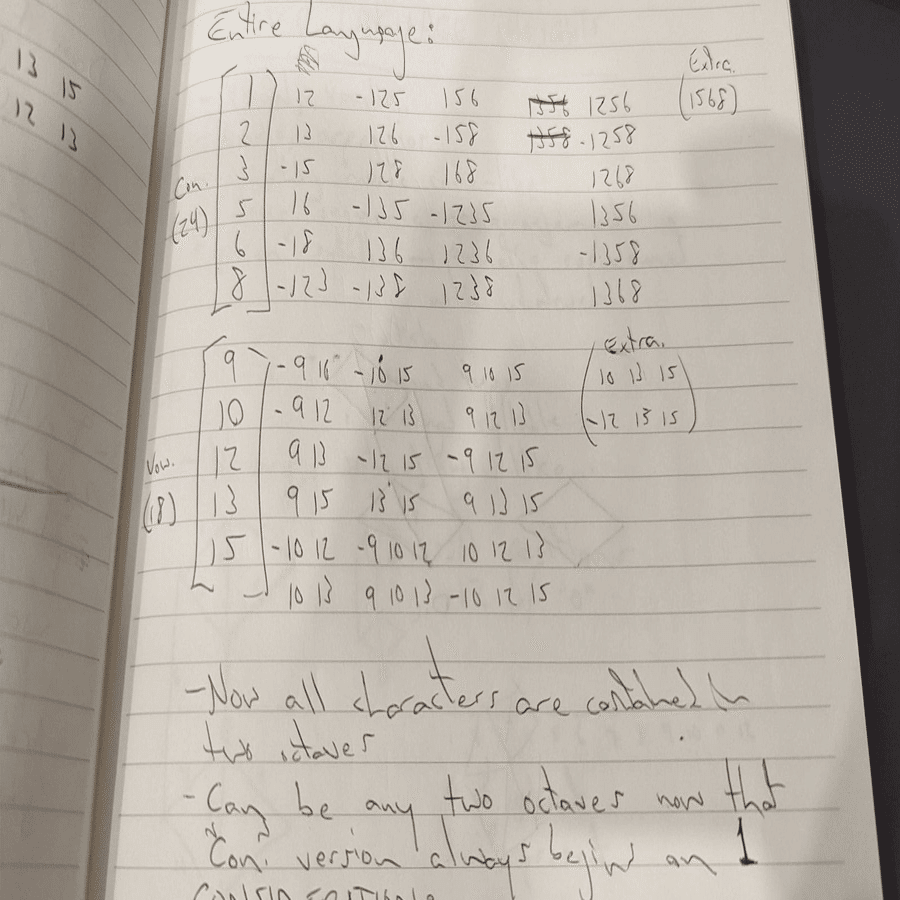 13 15
12 13
Entire Language:
Extra.
1 12 -125 156 1356 1256 (1568)
2 13 126 -158 1358 -1258
3 -15 128 168 1268
Con.
(24)
5 16 -135 -1235 1356
6 -18 136 1236 -1358
8 -123 -138 1238 1368
Extra.
9 -9 10 -10 15 9 10 15 10 13 15
10 -9 12 12 13 9 12 13 -12 13 15
Vow.
12 9 13 -12 15 -9 12 15
(18)
13 9 15 13 15 9 13 15
15 -10 12 -9 10 12 10 12 13
10 13 9 10 13 -10 12 15
-Now all characters are contained in
two octaves
-Can be any two octaves now that
"Con." version always begins on 1